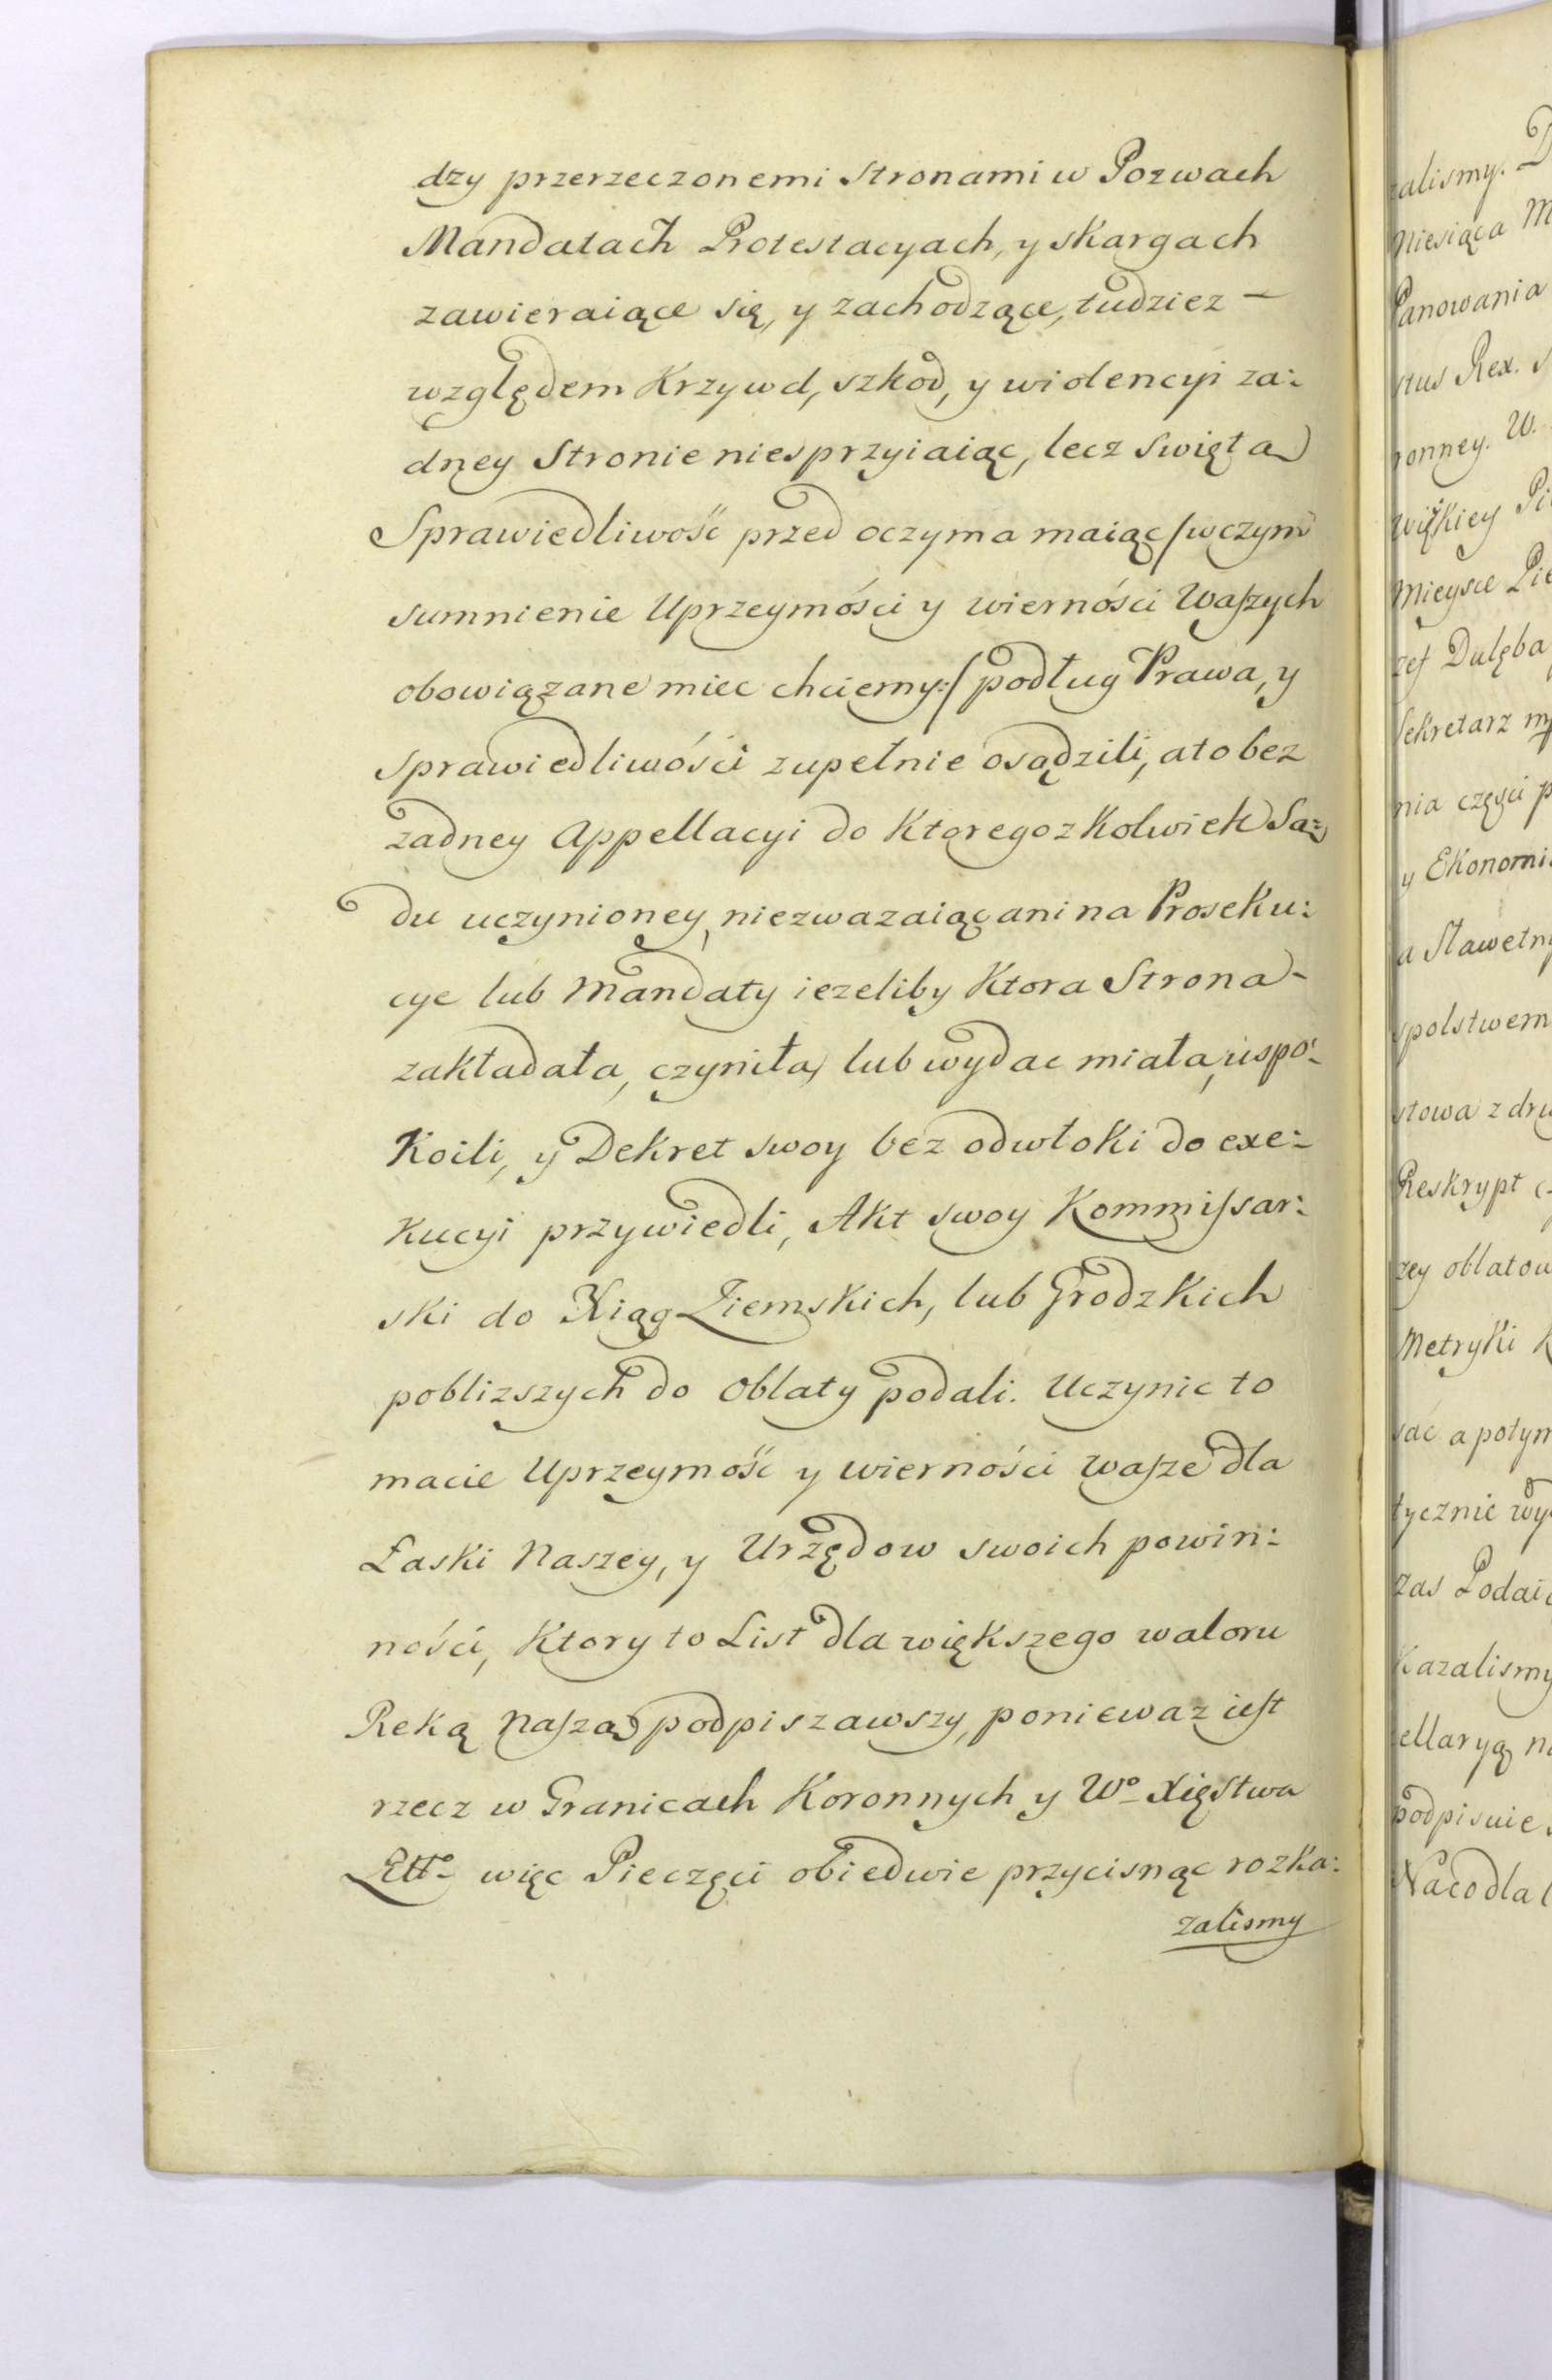 dzy przerzeczonemi Stronami w Pozwach
Mandatach Protestacyach, y skargach
zawieraiące się, y zachodzące, tudziez —
względem Krzywd, szkod, y wiolencyi za:
dney Stronie niesprzyiaiąc, lecz swiętą
Sprawiedliwość przed oczyma maiąc /wczym
sumnienie Uprzeymości y wierności Waszych
obowiązane miec chcemy:/ podług Prawa, y
sprawiedliwości zupełnie osądzili, ato bez
zadney Appellacyi do Ktoregozkolwiek Są:
du uczynioney, niezwazaiąc ani na Proseku:
cye lub Mandaty iezeliby Ktora Strona -
zakładała, czyniła, lub wydac miała, uspo:
Koili, y Dekret swoy bez odwłoki do exe:
Kucyi przywiedli, Akt swoy Kommissar:
ski do Xiąg Ziemskich, lub Grodzkich
poblizszych do Oblaty podali. Uczynic to
macie Uprzeymość y wierności wasze dla
Łaski Naszey, y Urzędow swoich powin:
ności, Ktory to List dla większego waloru
Reką Naszą podpiszawszy, poniewaz iest
rzecz w Granicach Koronnych y Wo Xięstwa
Litto więc Pieczęci obiedwie przycisnąc rozka:
zalismy
zalismy. D
Miesiąca M
Panowania
stus Rex. S
ronney. W.
więkiey Pi
Mieysce Pie
zef Dulęba
Sekretarz mp
nia części p
y Ekonomi
a Sławetny
spolstwem
stowa z dru
Reskrypt
zey oblatow
Metryki K
sać a potym
tycznie wy
zas Podaią
Kazalismy
cellaryą n
podpisuie
Naco dla l